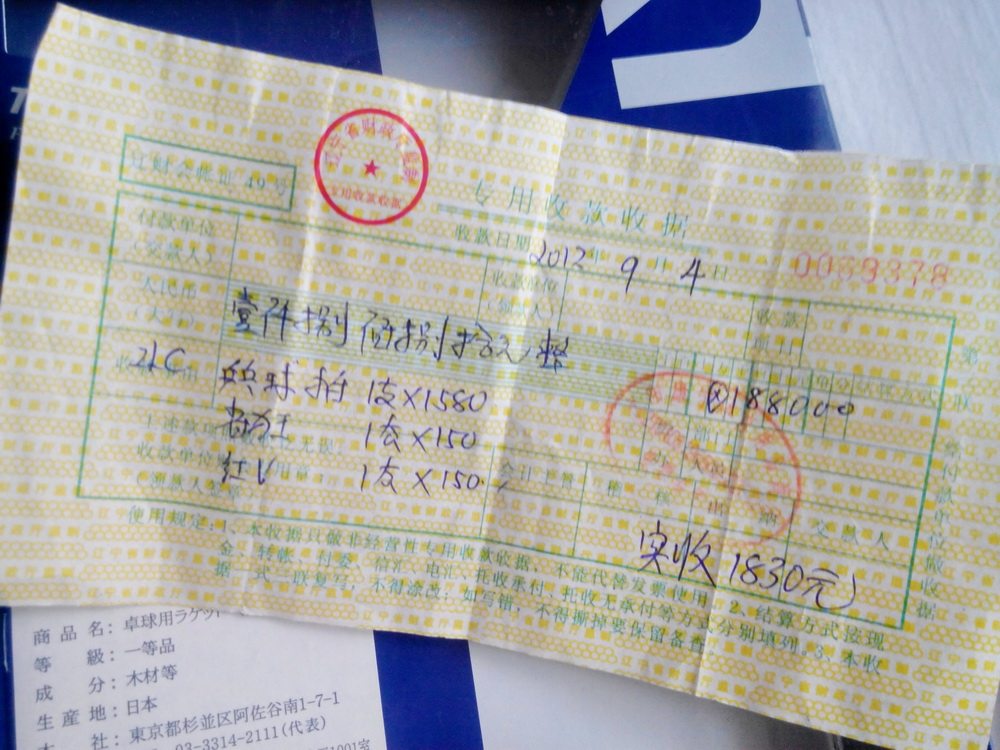 专用收款收据
辽财会账证49号
收款日期 2012年9月4日
0039378
付款单位
(交款人)
收款单位
(领款人)
收款
项目
人民币
(大写)
壹仟捌佰捌拾元整
188000
2LC
乒球拍 1支×1580
1套×150
红V 1支×150
实收1830元
会计主管
稽核
出纳
交款人
第
联
给付款单位做收据
使用规定:1、本收据只做非经营性专用收款收据,不能代替发票使用。2、结算方式按现
金、转帐、付委、信汇、电汇、托收承付、托收无承付等方式分别填列。3、本收
据一式三联复写,不得涂改;如写错,不得撕掉要保留备查。
商品名:卓球用ラケット
等級:一等品
成分:木材等
生産地:日本
本社:東京都杉並区阿佐谷南1-7-1
03-3314-2111(代表)